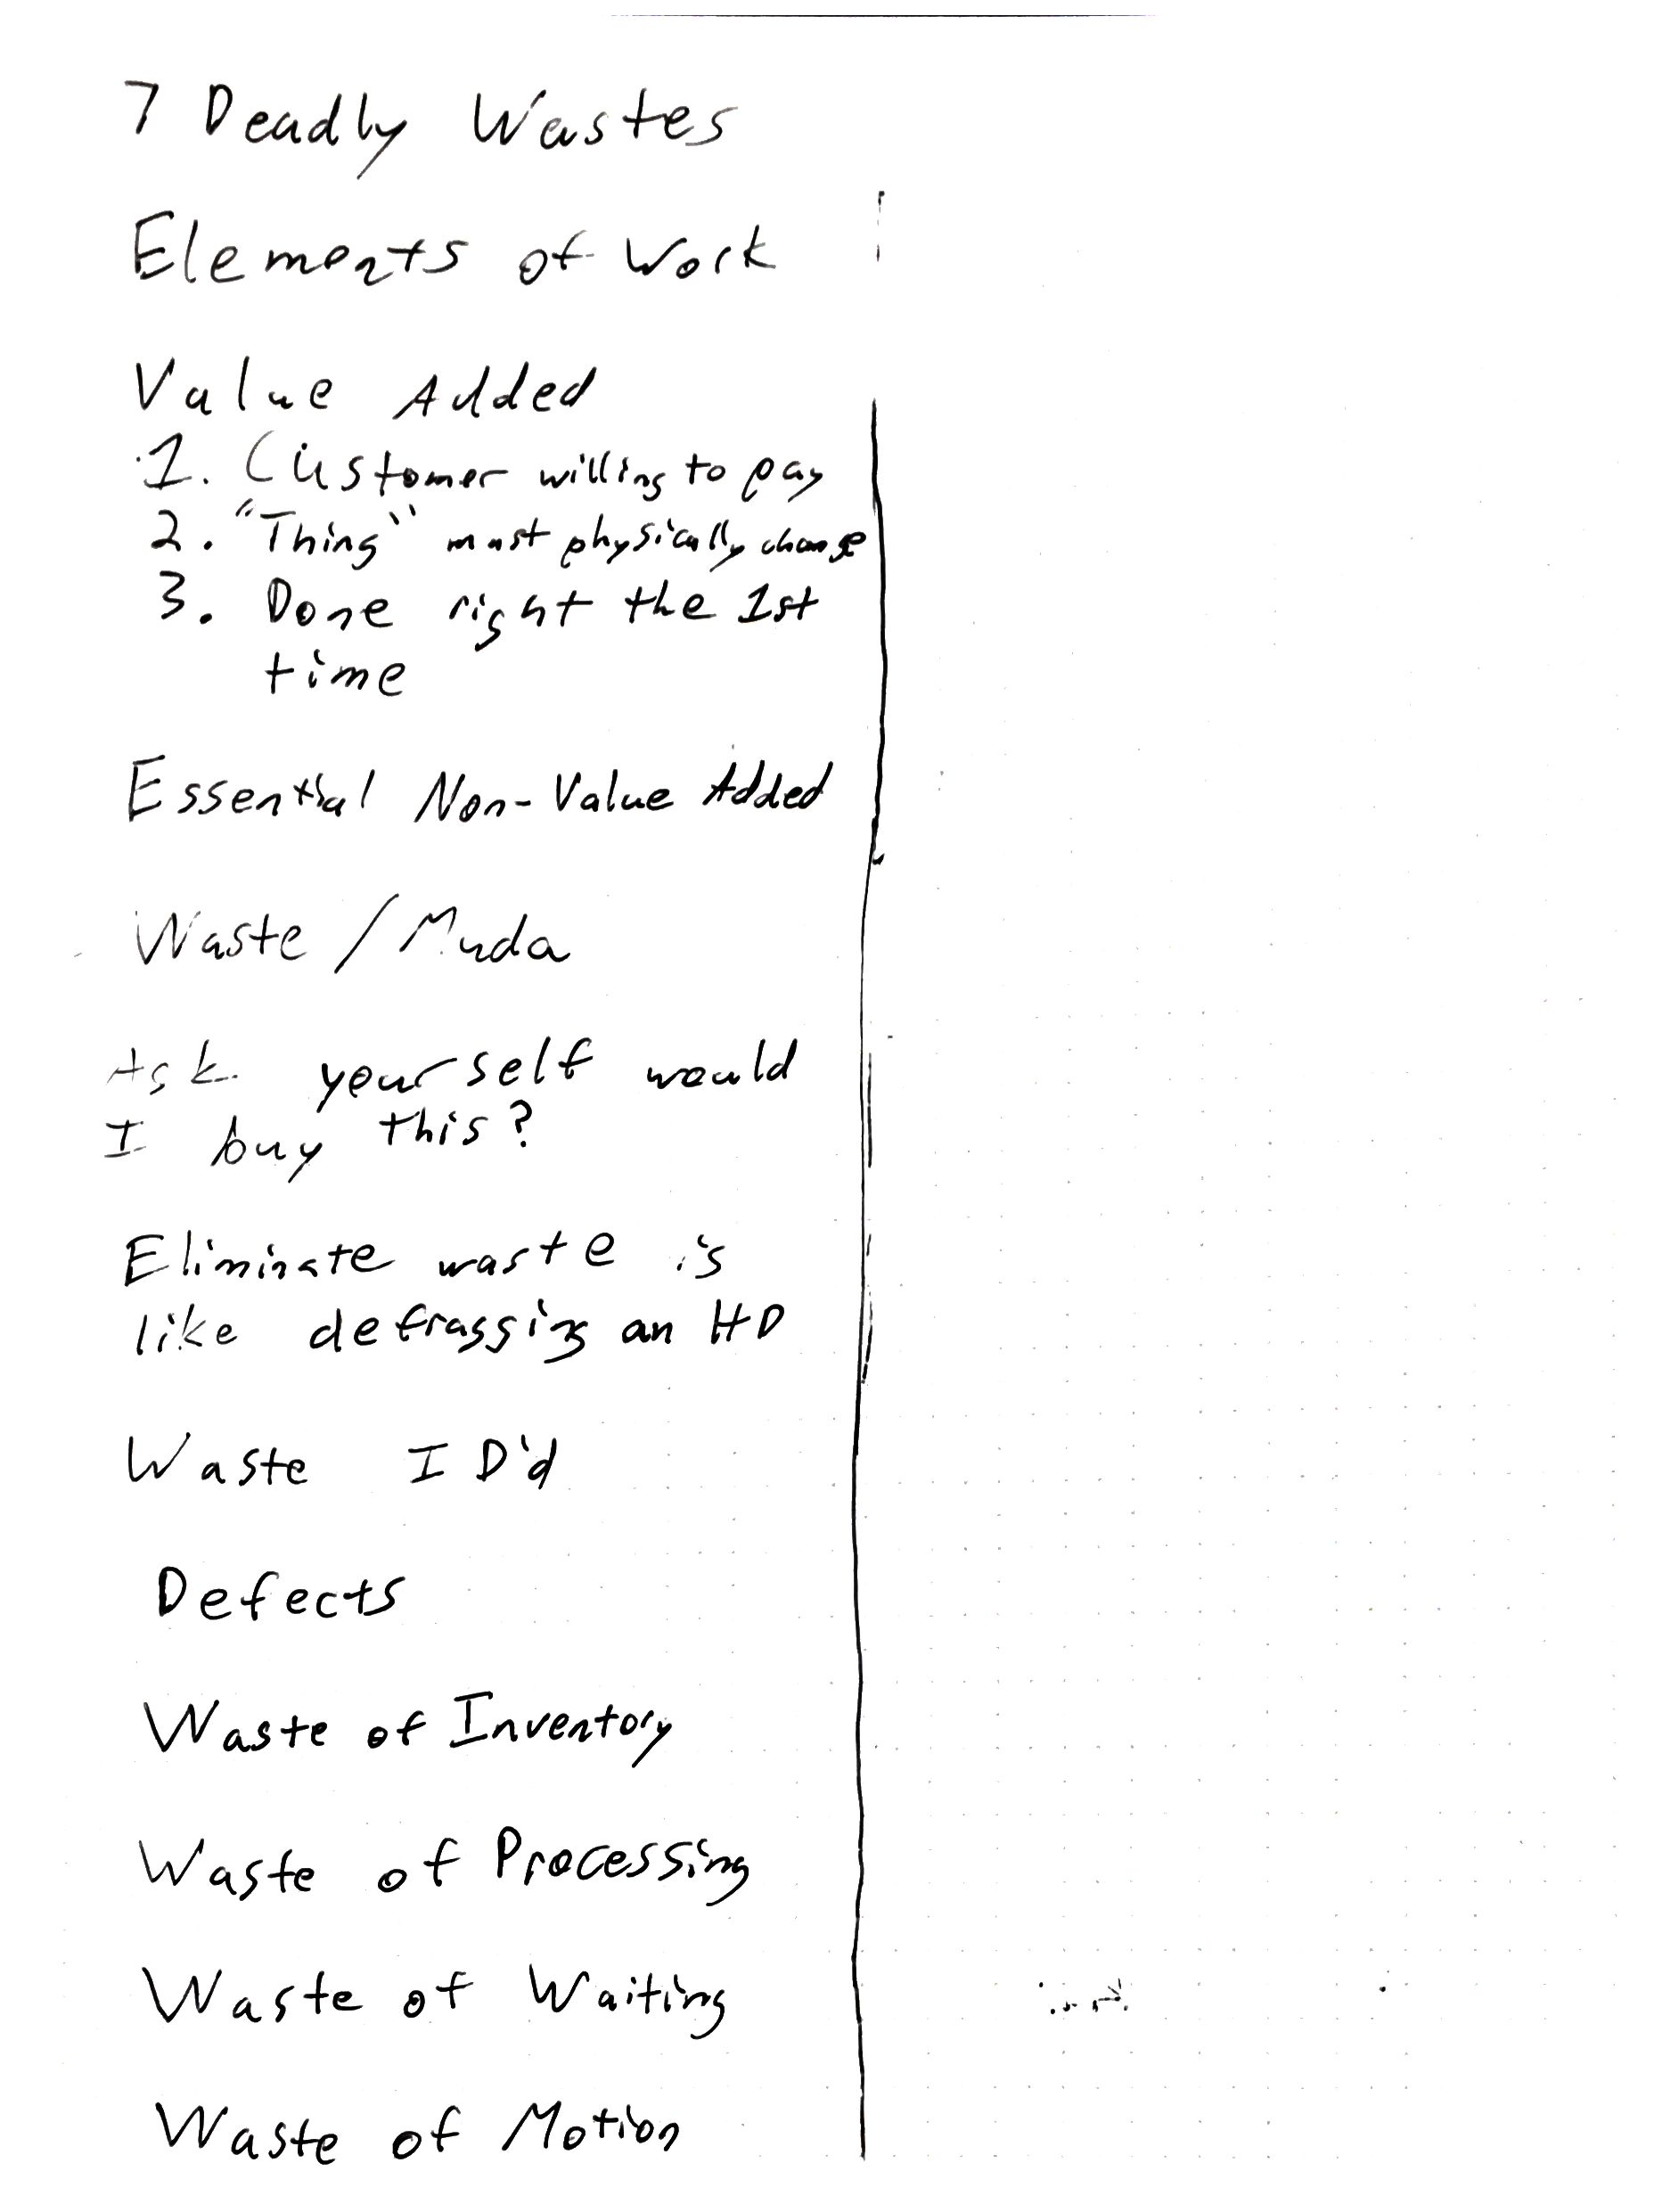 7 Deadly Wastes
Elements of Work
Value Added
1. Customer willing to pay
2. "Thing" must physically change
3. Done right the 1st
time
Essential Non-Value Added
Waste / Muda
Ask yourself would
I buy this?
Eliminate waste is
like defragging an HD
Waste ID'd
Defects
Waste of Inventory
Waste of Processing
Waste of Waiting
Waste of Motion